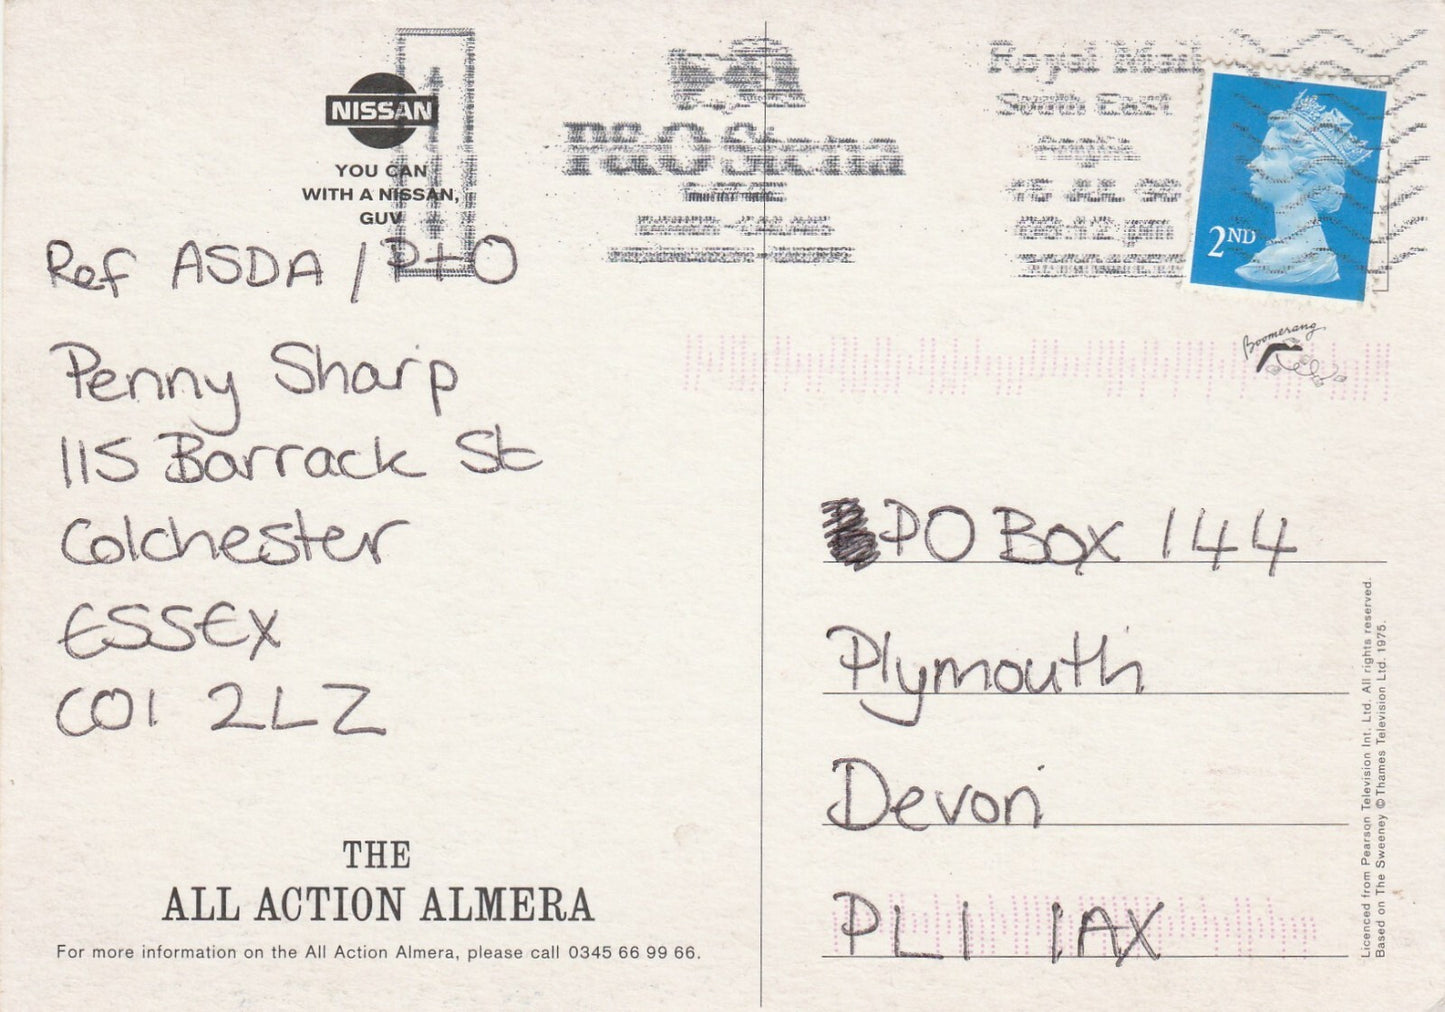 NISSAN
YOU CAN
WITH A NISSAN,
GUV
Ref ASDA / P+O
Penny Sharp
115 Barrack St
Colchester
ESSEX
CO1 2LZ
THE
ALL ACTION ALMERA
For more information on the All Action Almera, please call 0345 66 99 66.
P&O Stena
Royal Mail
South East
Anglia
15 JUL 98
2ND
Boomerang
PO BOX 144
Plymouth
Devon
PL1 1AX
Licenced from Pearson Television Int. Ltd. All rights reserved.
Based on The Sweeney © Thames Television Ltd. 1975.